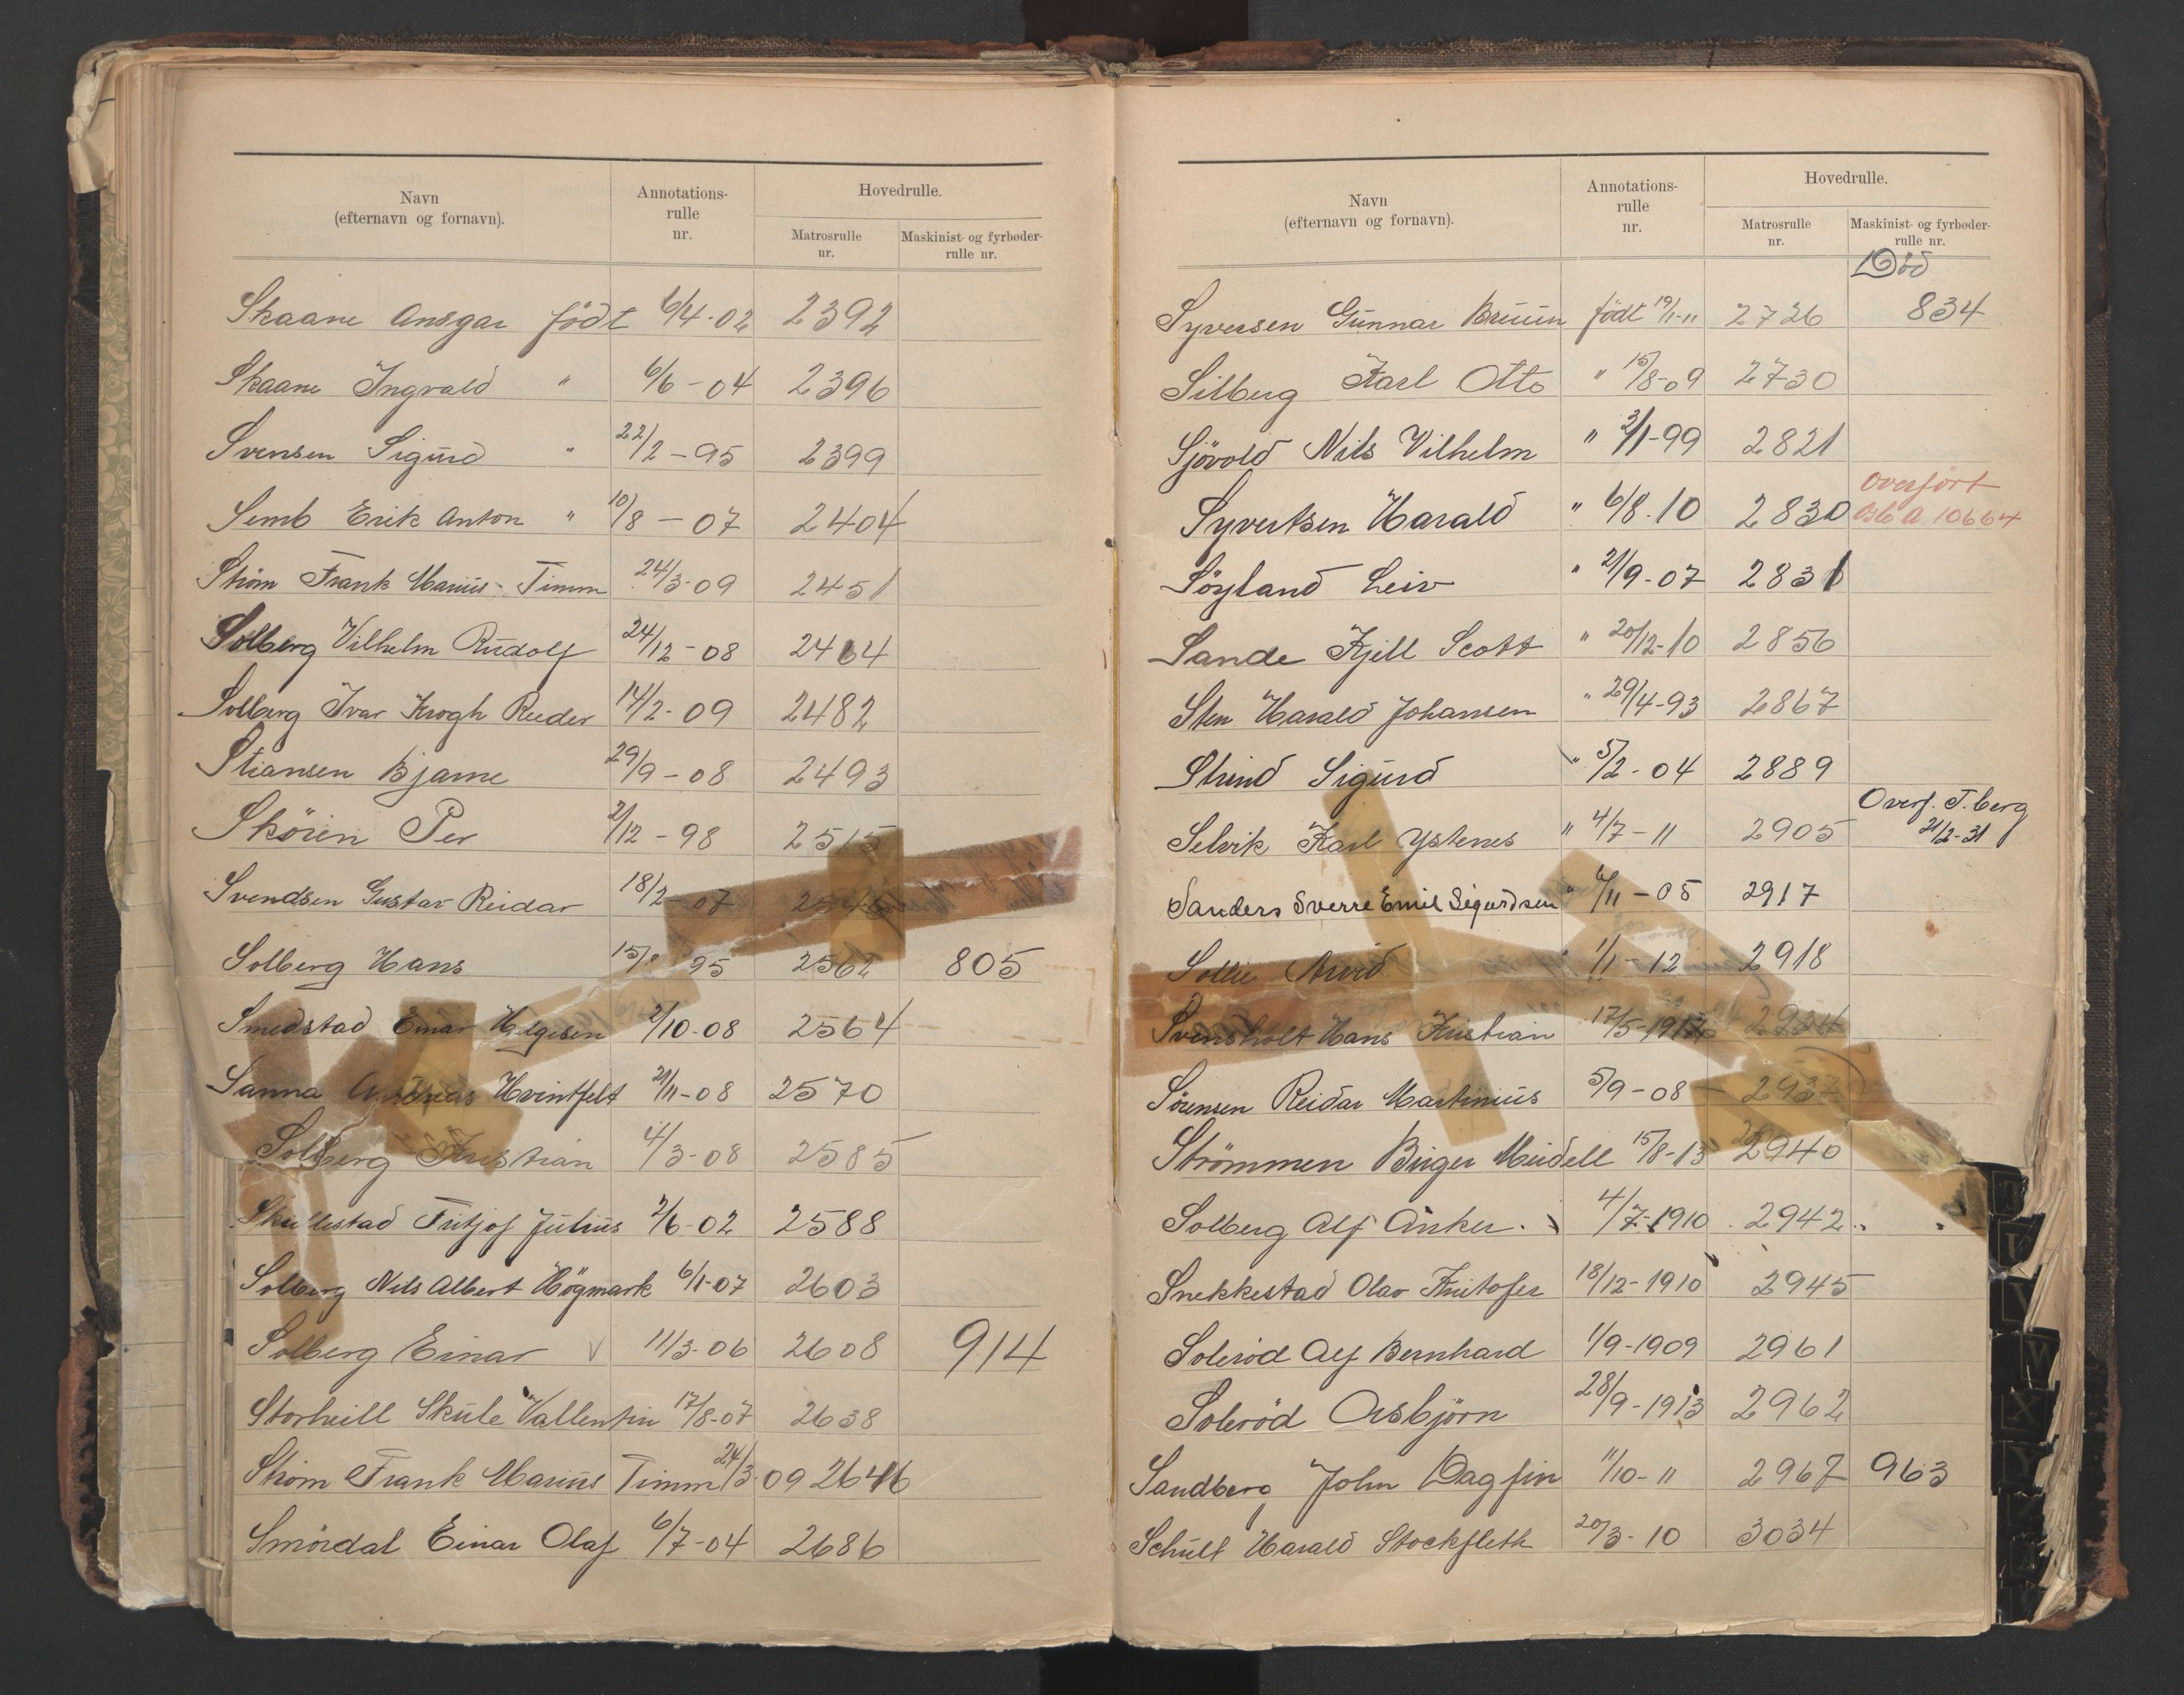 Navn
(efternavn og fornavn).
Annotations-
rulle
nr.
Hovedrulle.
Matrosrulle
nr.
Maskinist- og fyrbøder-
rulle nr.
Skaane Ansgar födt 6/4-02 2392
Skaane Ingvald " 6/6-04 2396
Svensen Sigurd " 22/2-95 2399
Semb Erik Anton " 10/8-07 2404
Ström Frank Marius-Timm 24/3-09 2451
Solberg Vilhelm Rudolf 24/12-08 2464
Solberg Ivar Krogh Reeder 14/2-09 2482
Stiansen Bjarne 29/9-08 2493
Skören Per 2/12-98 2515
Svendsen Gustav Reidar 18/2-07
Solberg Hans 95 805
Smedstad Einar Helgesen 2/10-08 2564
Sanna Andreas Hvintfelt 21/11-08 2570
Solberg Kristian 4/3-08 2585
Skullestad Fritjof Julius 2/6-02 2588
Solberg Nils Albert Högmark 6/1-07 2603
Solberg Einar V 11/3-06 2608 914
Storheill Skule Vallentin 17/8-07 2638
Ström Frank Marius Timm 24/3-09 2646
Smördal Einar Olaf 6/7-04 2686
Navn
(efternavn og fornavn).
Annotations-
rulle
nr.
Hovedrulle.
Matrosrulle
nr.
Maskinist- og fyrbøder-
rulle nr.
Död
Syversen Gunnar Bruun födt 19/1-11 2726 834
Silberg Karl Otto " 15/8-09 2730
Sjövold Nils Vilhelm " 3/1-99 2821
Overfört
Syvertsen Harald " 6/8-10 2830 Oslo A. 10664
Söyland Leiv " 21/9-07 2831
Sande Kjell Scott " 20/12-10 2856
Sten Harald Johansen " 29/4-93 2867
Strind Sigurd " 5/2-04 2889
Overf. T.berg
Selvik Karl Ystenes " 4/7-11 2905 21/2-31
Sanders Sverre Emil Sigurdsen " 6/11-05 2917
Sollie Arvid " 1/1-12 2918
Svensholt Hans Kristian 17/5-1912 2934
Sörensen Reidar Martinius 5/9-08 2937
Strömmen Birger Meidell 15/8-13 2940
Solberg Alf Anker. 4/7-1910 2942
Snekkestad Olav Kristofer 18/12-1910 2945
Soleröd Alf Bernhard 1/9-1909 2961
Soleröd Asbjörn 28/9-1913 2962
Sandberg John Dagfin 11/10-11 2967 963
Schult Harald Stockfleth 20/3-10 3034
V
W
X
Y